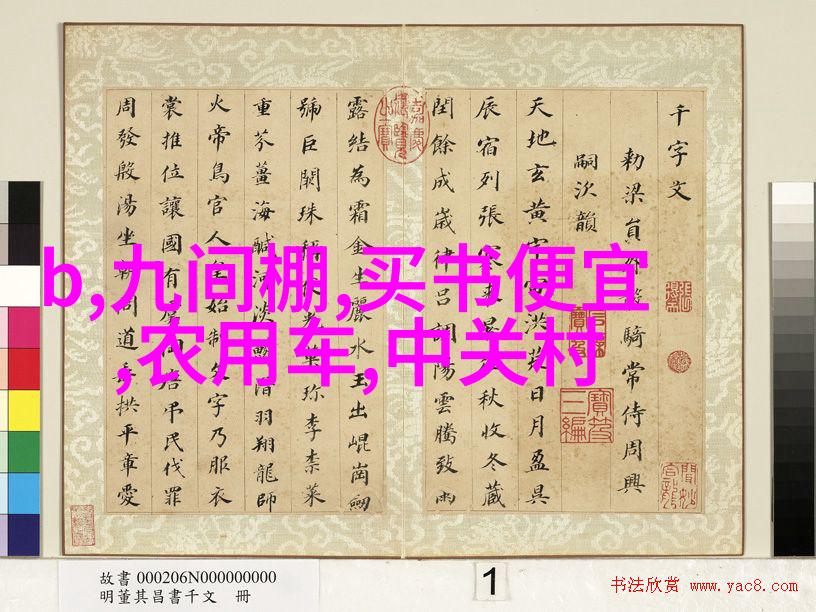 千字文
勑梁員外散騎常侍周興
嗣次韻
天地玄黃宇宙洪荒日月盈昃
辰宿列張寒来暑往秋收冬藏
閏餘成歲律吕調陽雲騰致雨
露結為霜金生麗水玉出崐崗劒
號巨闕珠稱夜光菓珍李柰菜
重芥薑海醎河淡鱗潛羽翔龍師
火帝鳥官人皇始制文字乃服衣
裳推位讓國有虞陶唐弔民伐罪
周發殷湯坐朝問道垂拱平章愛
b,九间棚,买书便宜
,农用车,中关村
故書 000206N000000000
明董其昌書千文 冊
1
书法欣赏 www.yac8.com